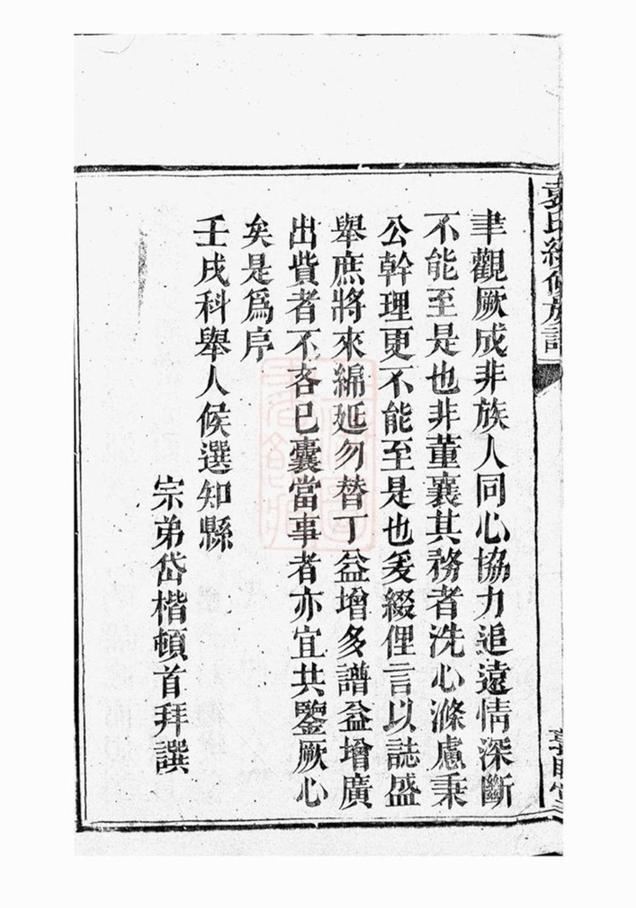 聿觀厥成非族人同心協力追遠情深斷
不能至是也非董襄其務者洗心滌慮秉
公幹理更不能至是也爰綴俚言以誌盛
舉庶將來綿延勿替丁益增多譜益增廣
出貲者不吝已囊當事者亦宜共鑒厥心
矣是爲序
壬戌科舉人候選知縣
宗弟岱楷頓首拜譔